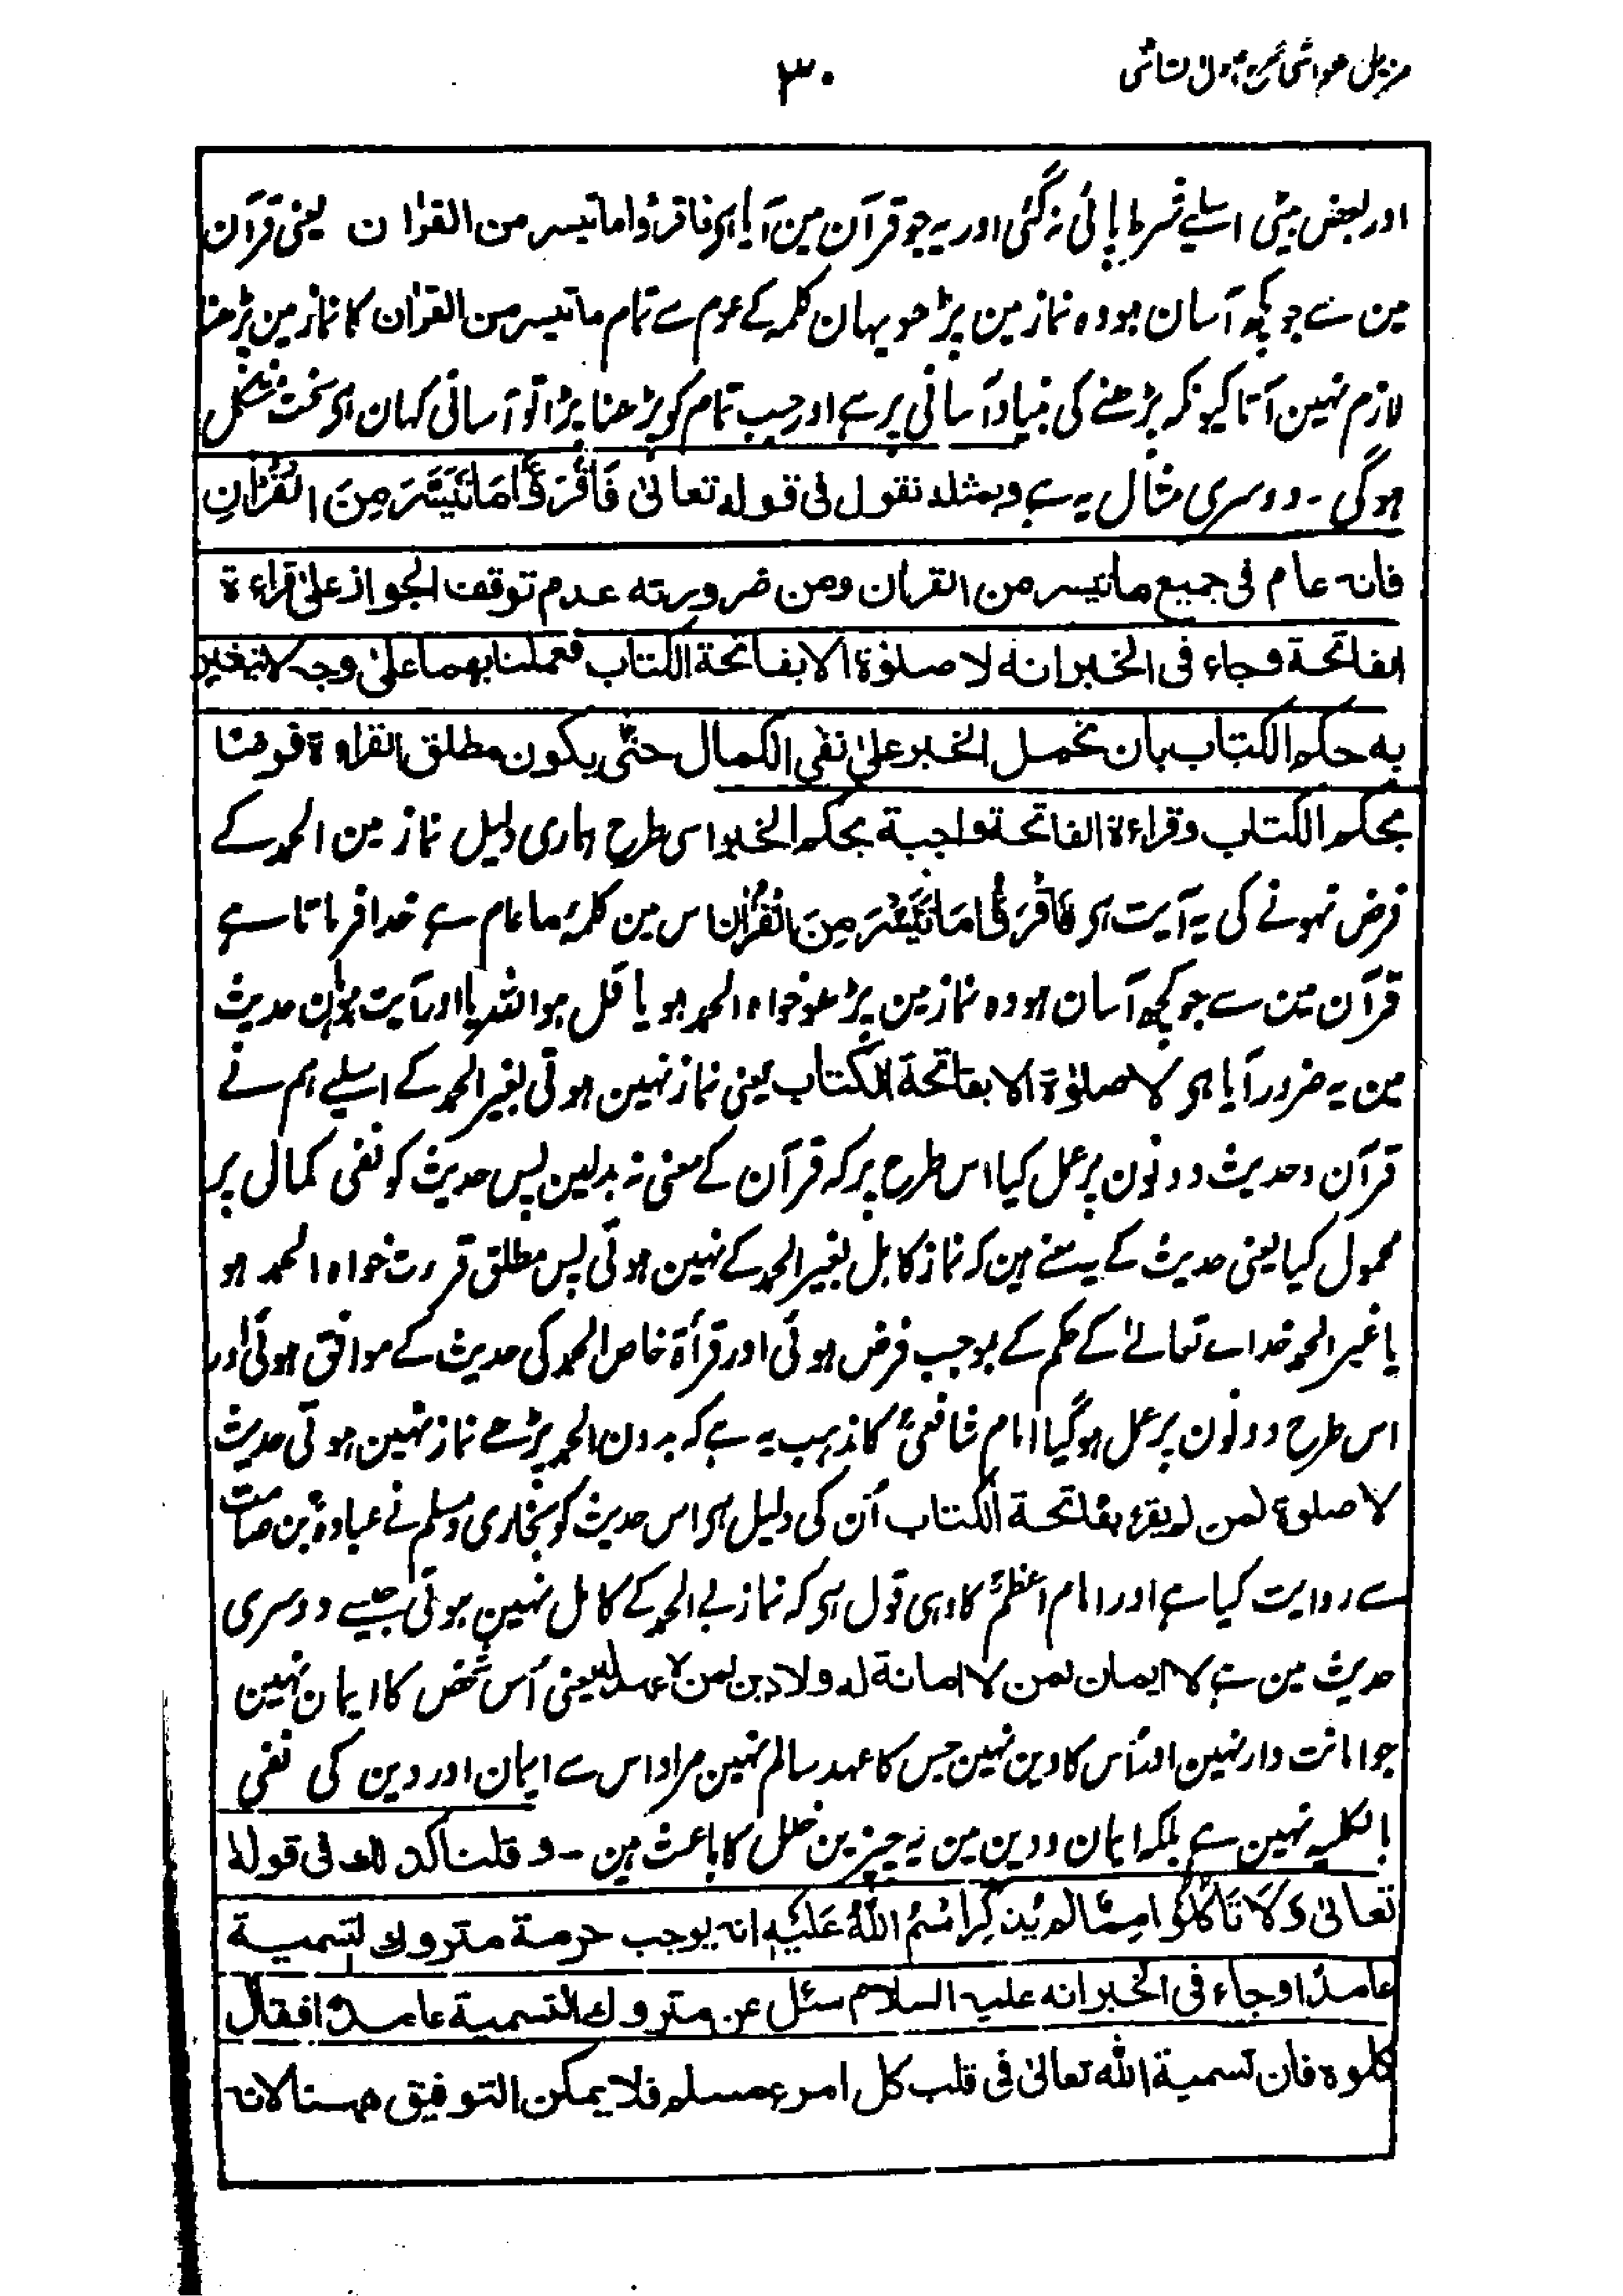 مزیل الغواشی شرح اصول الشاشی
۳۰
اور بعض بیٹی اسلیے شرط پائی نہ گئی اور یہ جو قرآن مین آیا ہی فاقرؤا ما تیسر من القرٰان یعنی قرآن
مین سے جو کچھ آسان ہو وہ نماز مین پڑھو یہان کلمہ کے عموم سے تمام ما تیسر من القرٰان کا نماز مین پڑھنا
لازم نہین آتا کیونکہ پڑھنے کی بنیاد آسانی پر ہے اور جب تمام کو پڑھنا پڑا تو آسانی کہان ہی سخت مشکل
ہوگی ۔ دوسری مثال یہ ہے وبمثلہ نقول فی قولہ تعالیٰ فَاقْرَؤُا مَا تَيَسَّرَ مِنَ الْقُرْاٰنِ
فانہ عام فی جمیع ما تیسر من القراٰن ومن ضرورتہ عدم توقف الجواز علیٰ قراءۃ
الفاتحة وجاء فی الخبر انہ لا صلوٰۃ الا بفاتحة الکتاب فعملنا بھما علیٰ وجہ لا یتغیر
بہ حکم الکتاب بان نحمل الخبر علیٰ نفی الکمال حتّٰی یکون مطلق القراءۃ فرضا
بحکم الکتاب وقراءۃ الفاتحة واجبة بحکم الخبر اسی طرح ہماری دلیل نماز مین الحمد کے
فرض نہونے کی یہ آیت ہی فَاقْرَؤُا مَا تَيَسَّرَ مِنَ الْقُرْاٰن اس مین کلمۂ ما عام ہے خدا فرماتا ہے
قرآن مین سے جو کچھ آسان ہو وہ نماز مین پڑھو خواہ الحمد ہو یا قل ہو اللہ یا اور آیت ہو لٰکن حدیث
مین یہ ضرور آیا ہی لا صلوٰۃ الا بفاتحة الکتاب یعنی نماز نہین ہوتی بغیر الحمد کے اسلیے ہم نے
قرآن و حدیث دونون پر عمل کیا اس طرح پر کہ قرآن کے معنی نہ بدلین پس حدیث کو نفی کمال پر
محمول کیا یعنی حدیث کے یہ معنے ہین کہ نماز کامل بغیر الحمد کے نہین ہوتی پس مطلق قرءت خواہ الحمد ہو
یا غیر الحمد خداے تعالےٰ کے حکم کے بموجب فرض ہوئی اور قرأۃ خاص الحمد کی حدیث کے موافق ہوئی اور
اس طرح دونون پر عمل ہوگیا امام شافعیؒ کا مذہب یہ ہے کہ بدون الحمد پڑھے نماز نہین ہوتی حدیث
لا صلوۃ لمن لم یقرء بفاتحة الکتاب اُن کی دلیل ہی اس حدیث کو بخاری و مسلم نے عبادہؓ بن صامت
سے روایت کیا ہے اور امام اعظمؒ کا وہی قول ہی کہ نماز بے الحمد کے کامل نہین ہوتی جیسے دوسری
حدیث مین ہے لا ایمان لمن لا امانة لہ ولا دین لمن لا عہد لہ یعنی اُس شخص کا ایمان نہین
جو امانت دار نہین اور اُس کا دین نہین جس کا عہد سالم نہین مراد اس سے ایمان اور دین کی نفی
بالکلیہ نہین ہے بلکہ ایمان و دین مین یہ چیزین خلل کا باعث ہین ۔ وقلنا کذلک فی قولہ
تعالیٰ وَلَا تَأْكُلُوْا مِمَّا لَمْ يُذْكَرِ اسْمُ اللّٰهِ عَلَيْهِ انہ یوجب حرمة متروک التسمیة
عامدًا وجاء فی الخبر انہ علیہ السلام سئل عن متروک التسمیة عامدًا فقال
کلوہ فان تسمیة اللّٰہ تعالیٰ فی قلب کل امرء مسلم فلا یمکن التوفیق بینھما لانہ